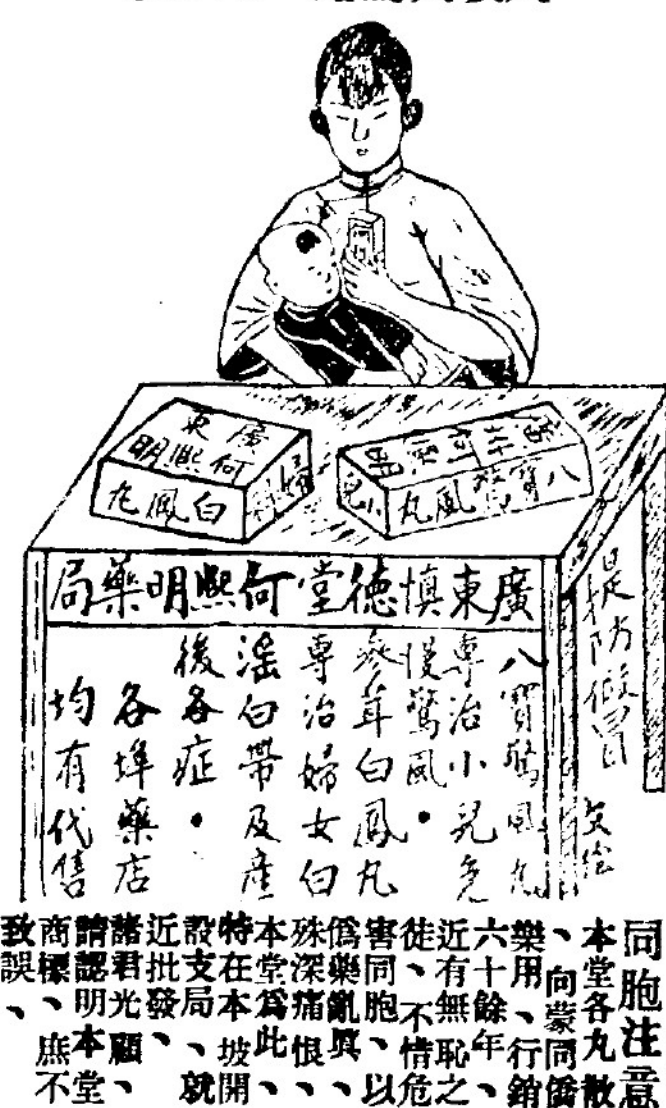 廣東
何熙明
白鳳丸
婦科
何熙明
八寶驚風丸
小兒
廣東慎德堂何熙明藥局
八寶驚風丸
專治小兒急
慢驚風・
參茸白鳳丸
專治婦女白
淫白帶及產
後各症・
各埠藥店
均有代售
提防假冒
同胞注意
本堂各丸散
、向蒙同僑
樂用、行銷
六十餘年、
近有無恥之
徒、不惜危
害同胞、以
僞藥亂眞、
殊深痛恨、
本堂爲此、
特在本坡開
設支局、就
近批發、
諸君光顧、
請認明本堂
商標、庶不
致誤、